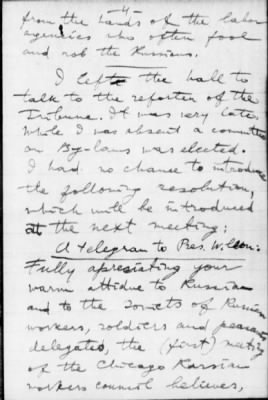 4
from the hands of the labor
agencies who often fool
and rob the Russians.
I left the hall to
talk to the reporter of the
Tribune. It was very late.
While I was absent a committee
on By-laws was elected.
I had no chance to introduce
the following resolution,
which will be introduced
at the next meeting:
A telegram to Pres. Wilson:
Fully apresiating your
warm attidue to Russian
and to the Soviets of Russian
workers, soldiers and peasants
delegates, the (first) meeting
of the Chicago Russian
workers council believes,